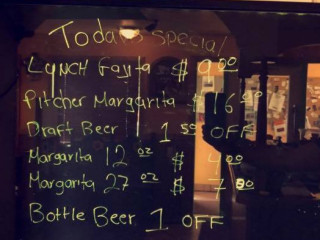 Today's special
LyNCH Fajita $ 9.00
Pitcher Margarita $ 16
Draft Beer 1 50 OFF
Margarita 12 oz $ 4.00
Margarita 27 oz $ 7
Bottle Beer 1 OFF